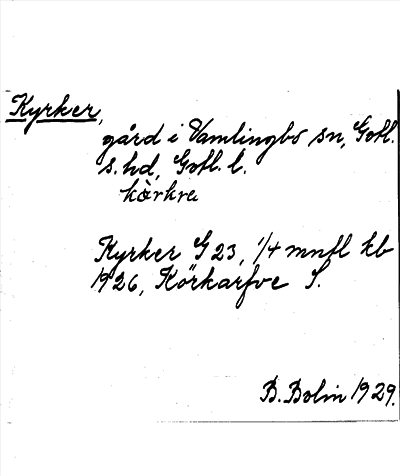 Kyrker,
gård i Vamlingbo sn, Gotl.
s. hd, Gotl. l.
kàrkra
Kyrker G 23, 1/4 mntl kb
1926, Körkarfve S.
B. Bolin 1929.